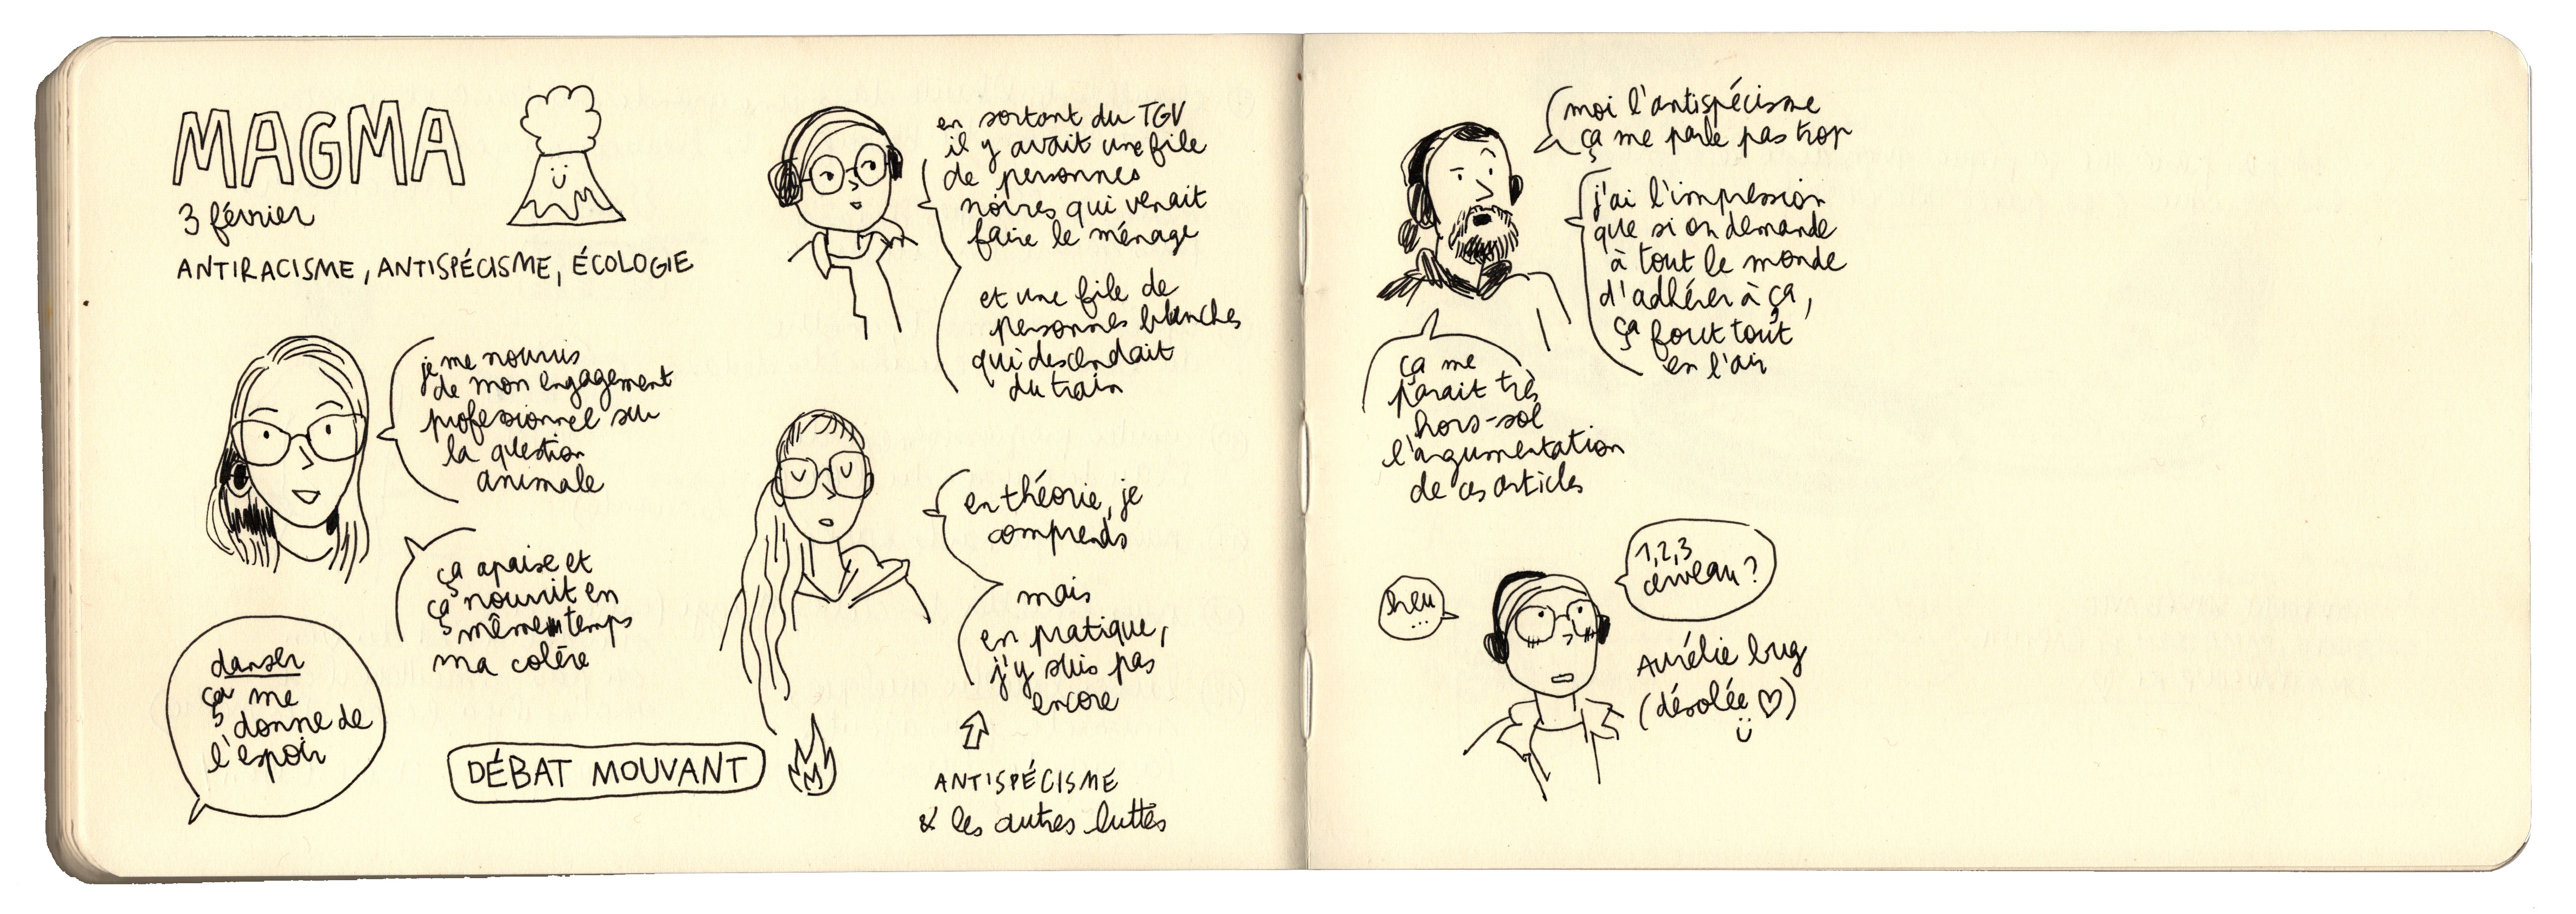 MAGMA
3 février
ANTIRACISME, ANTISPÉCISME, ÉCOLOGIE
je me nourris
de mon engagement
professionnel sur
la question
animale
ça apaise et
ça nourrit en
même temps
ma colère
danser
ça me
donne de
l'espoir
DÉBAT MOUVANT
en sortant du TGV
il y avait une file
de personnes
noires qui venait
faire le ménage
et une file de
personnes blanches
qui descendait
du train
en théorie, je
comprends
mais
en pratique,
j'y suis pas
encore
ANTISPÉCISME
& les autres luttes
moi l'antispécisme
ça me parle pas trop
j'ai l'impression
que si on demande
à tout le monde
d'adhérer à ça,
ça fout tout
en l'air
ça me
parait très
hors-sol
l'argumentation
de ces articles
heu
...
1,2,3
cerveau ?
Aurélie bug
(désolée ♡)